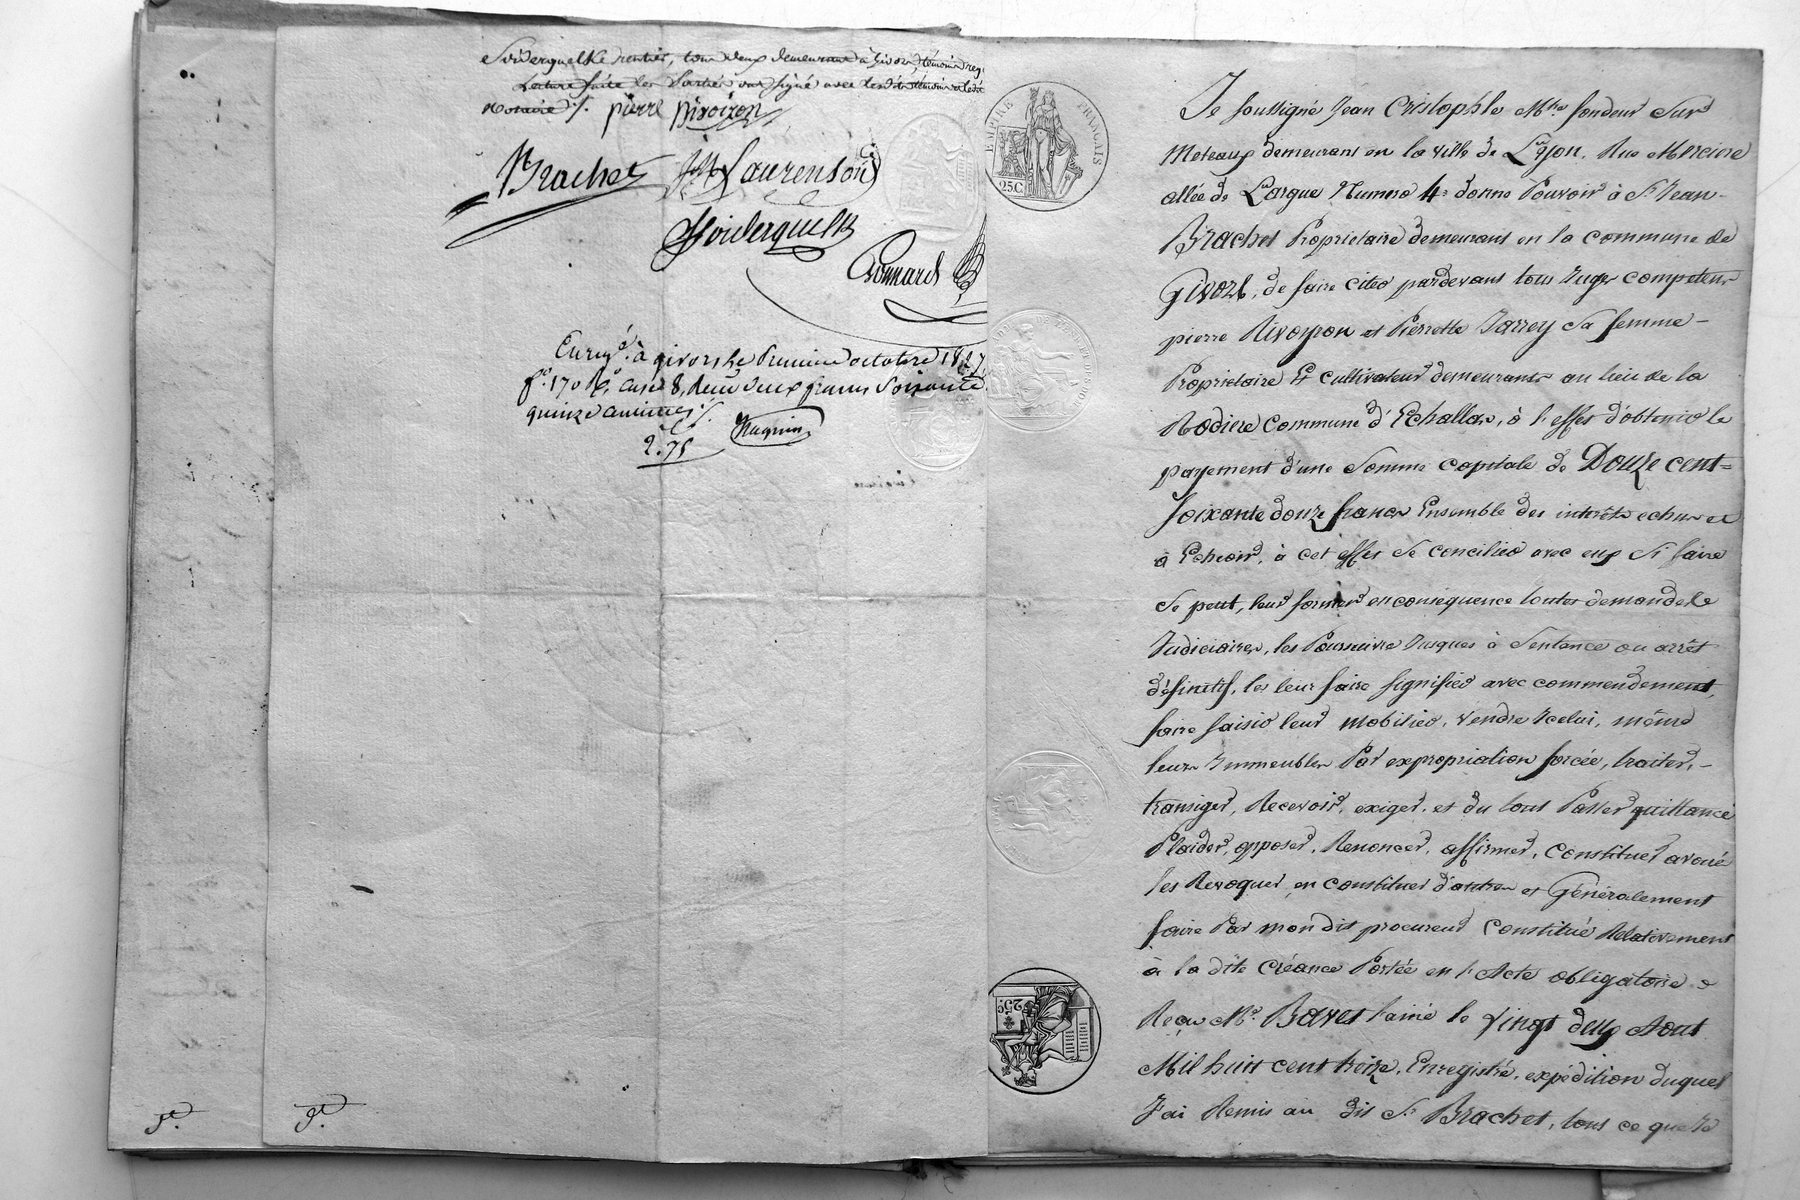 Soiderquelk rentier, tous deux demeurant à Givors, témoins req
Lecture faite les parties ont signé avec les dits témoins et le dit
Notaire ./.
pierre Rivoiron
Brachet
Laurenson
Soiderquelk
Bonnard
Enregé. à givors le Premier octobre 1817
fo. 170 Ro. case 8, Reçu deux francs Soixante
quinze centimes ./.
2.75
9e.
5e.
EMPIRE FRANÇAIS
25C
25C
Je soussigné Jean Cristophle Mtre fondeur Sur
Meteaux demeurant en la ville de Lyon, Rue Merciere
allée de Largue Numero 4. donne Pouvoir à Sr Jean
Brachet Proprietaire demeurant en la commune de
Givors, de faire citer pardevant tous Juges competens
pierre Rivoyron et Pierrette Jarrey Sa femme
Proprietaire Et cultivateur demeurants au lieu de la
Rodiere Commune d'Echallas, à l'effet d'obtenir le
payement d'une Somme capitale de Douze cent
soixante douze francs Ensemble des interêts echus et
à Echeoir, à cet effet Se concilier avec eux Si faire
Se peut, leur former en conséquence toutes demandes
Judiciaires, les Poursuivre Jusques à Sentence ou arrêt
définitif, les leur faire signifier avec commendement,
faire saisir leur mobilier, vendre Icelui, même
leurs Immeubles Par expropriation forcée, traiter,
transiger, Recevoir, exiger, et du tout Passer quittance
Plaider, opposer, Renoncer, affirmer, Constituer avoué
les Revoquer, en constituer d'autres et Généralement
faire Par mon dit procureur Constitué Relativement
à la dite Créance Portée en l'Acte obligatoire
Reçu Me. Baret l'ainé le vingt deux Aout
Mil huit cent treize, Enregistré, expédition duquel
J'ai Remis au dit Sr Brachet, tout ce que le